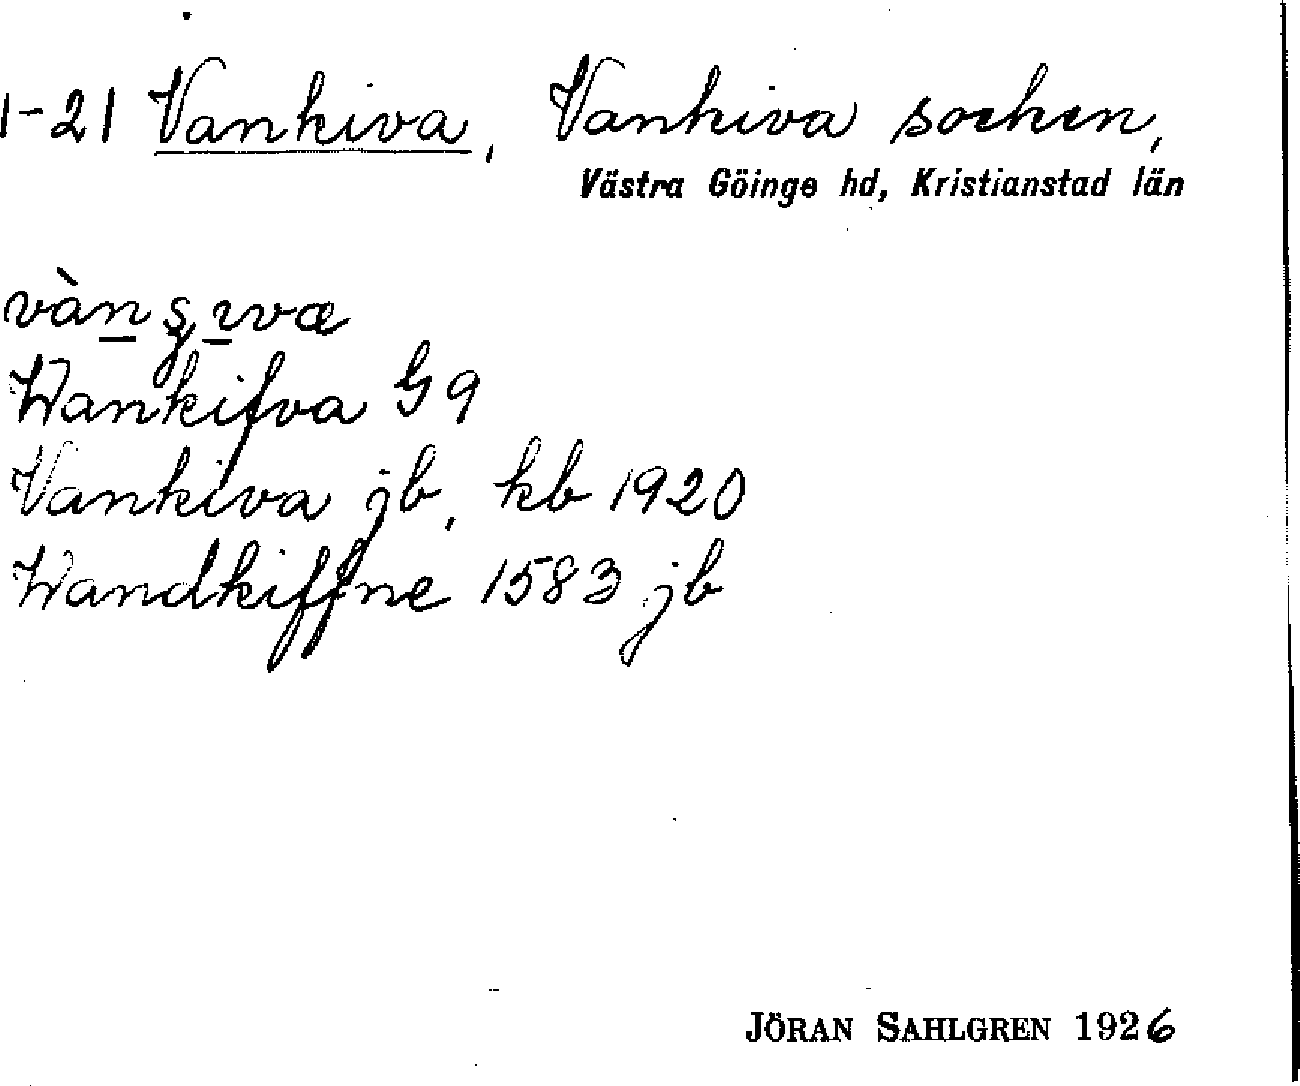 1-21 Vankiva, Vankiva socken,
Västra Göinge hd, Kristianstad län
vàn̲ʂɩ̲væ
Wankifva G 9
Vankiva jb, kb 1920
Wandkiffne 1583 jb
JÖRAN SAHLGREN 1926